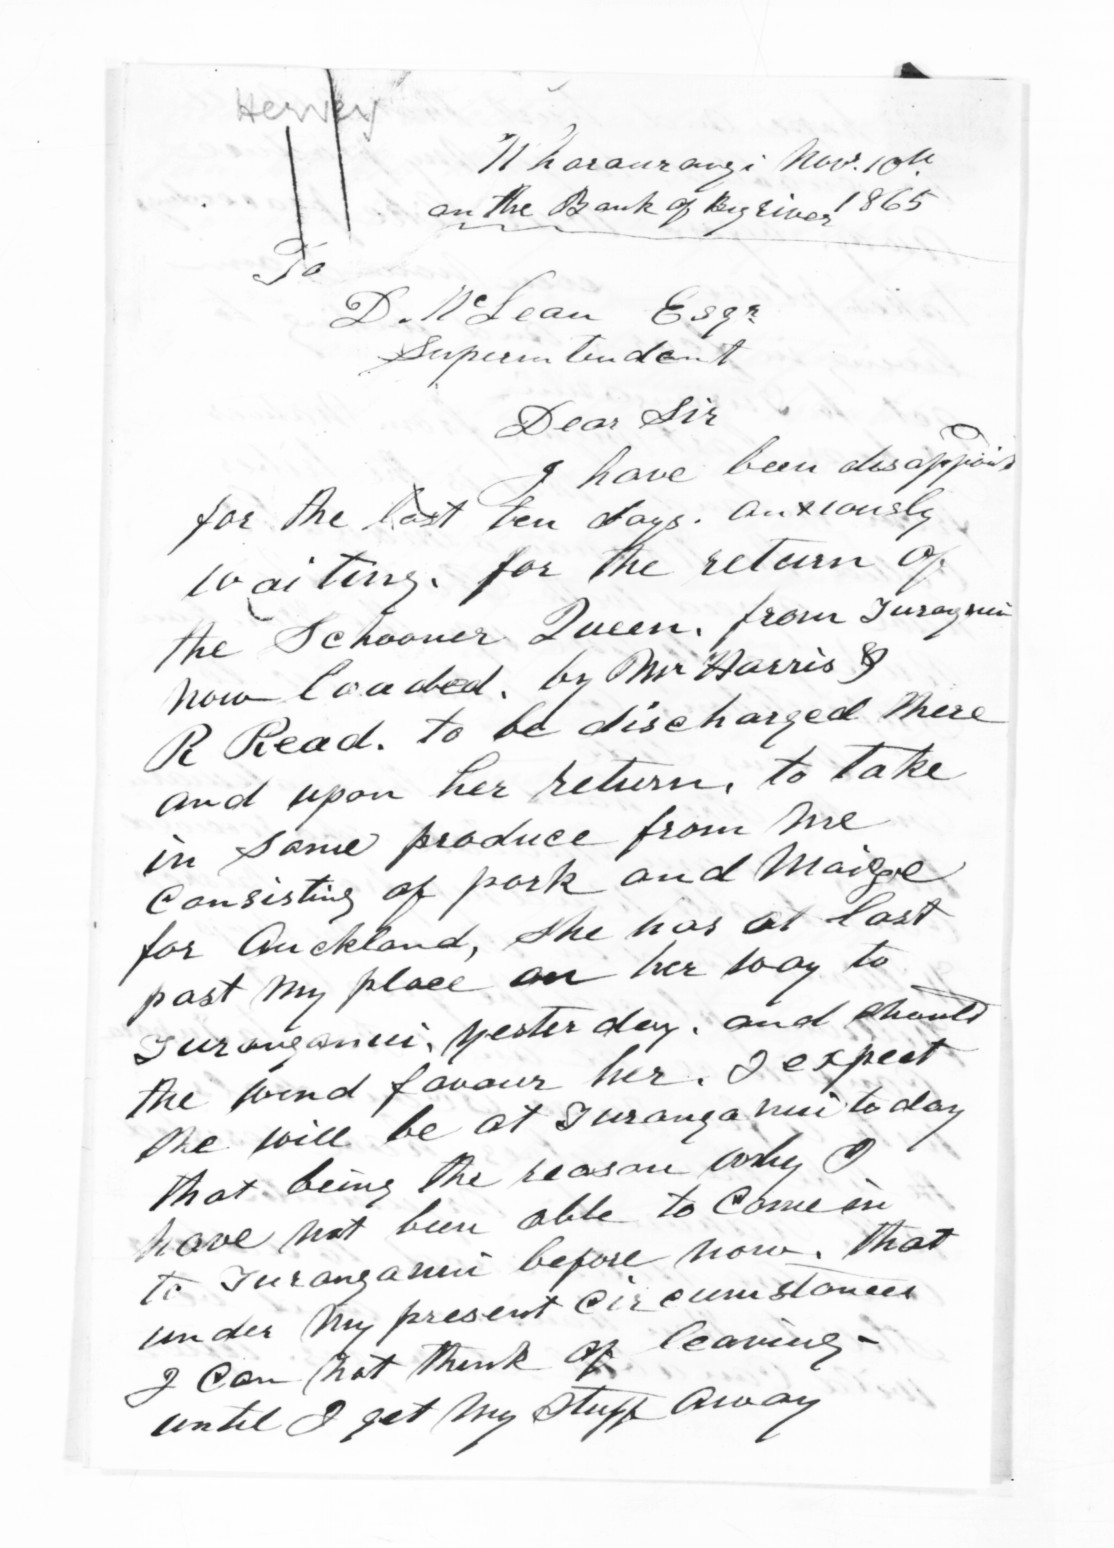 Hervey
Wharaurangi Novr. 10th.
on the Bank of Big river 1865
To
D. McLean Esqr
Superintendent
Dear Sir
I have been disappoint
for the last ten days. anxiously
waiting. for the return of
the Schooner Queen. from Turanganui
now loaded. by Mr Harris &
R Read. to be discharged there
and upon her return. to take
in some produce from me
Consisting of pork and Maize
for Auckland, she has at last
past my place on her way to
Turanganui. yesterday. and should
the wind favour her. I expect
she will be at Turanganui to day
that being the reason why I
have not been able to Come in
to Turanganui before now. that
under my present Circumstances
I Can not think of leaving -
until I get my stuff away